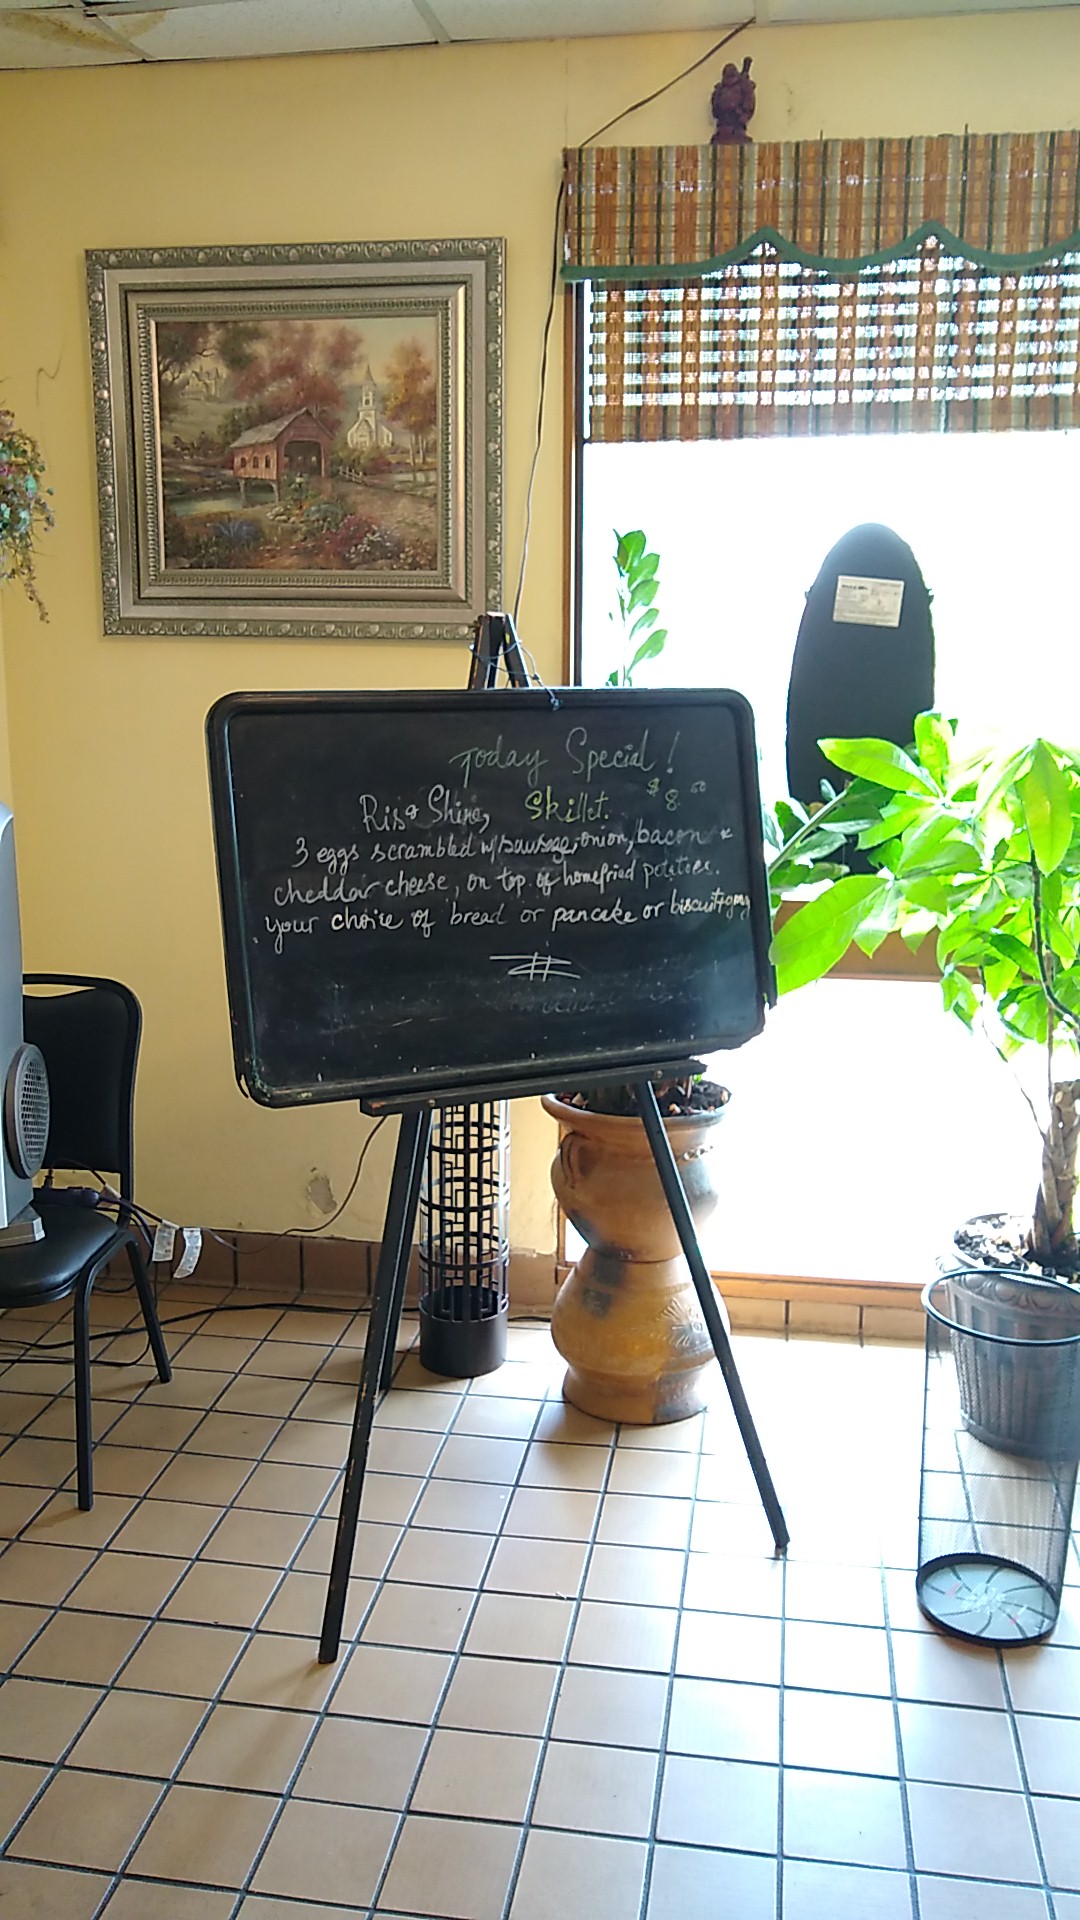 Today Special!
Rise Shine, Skillet. $8.00
3 eggs scrambled w/sausage, onion, bacon &
cheddar cheese, on top of homefried potatoes.
your choice of bread or pancake or biscuit+gravy